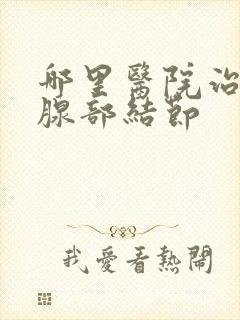 哪里醫院治
腺部結節
我愛看熱鬧